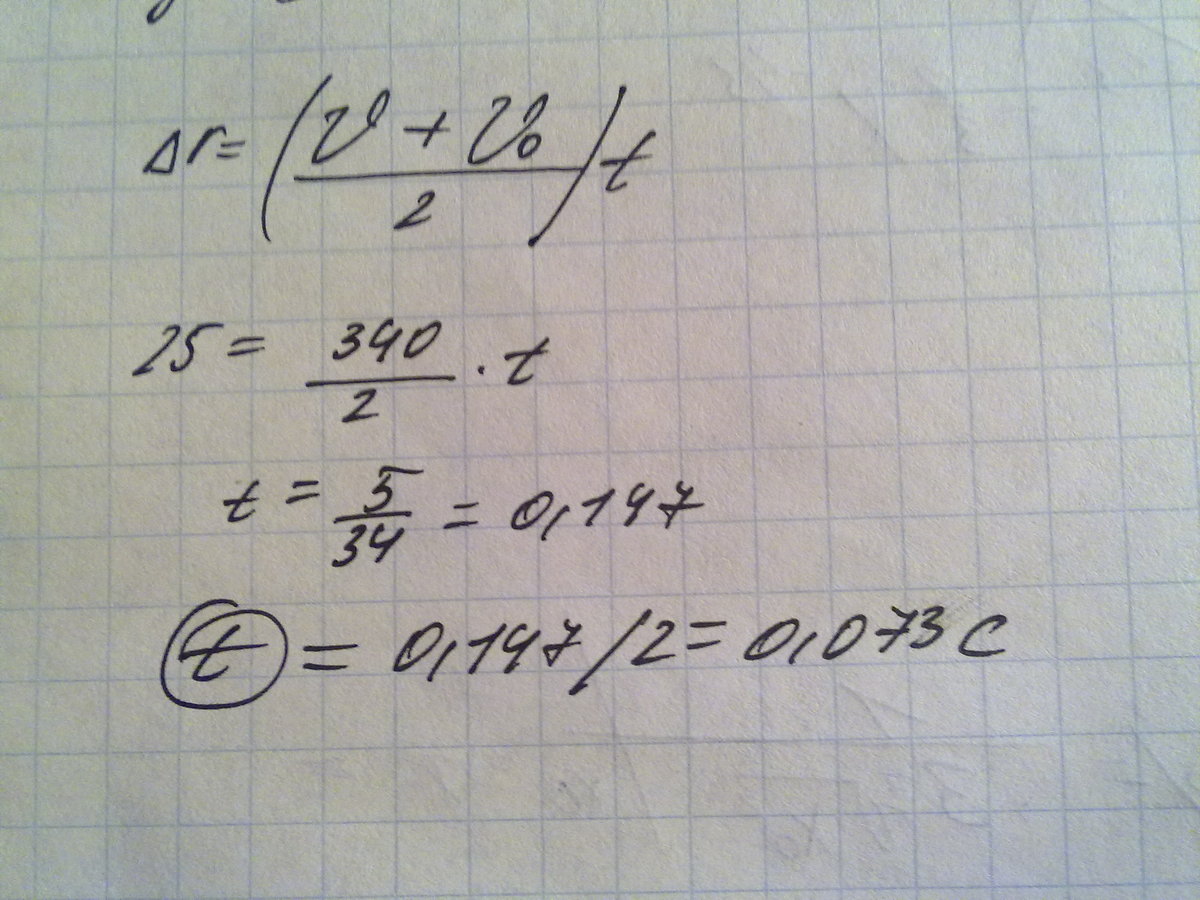 Δr = ((v + v₀)/2) t
25 = 340/2 · t
t = 5/34 = 0,147
t = 0,147/2 = 0,073 c